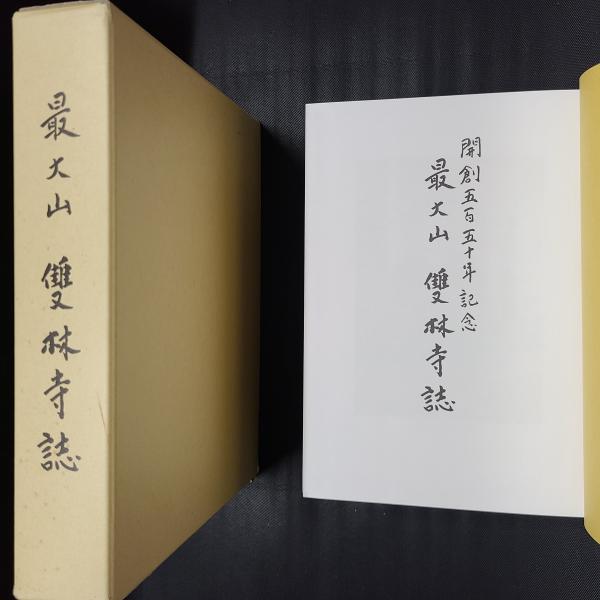 最大山 雙林寺誌
開創五百五十年記念
最大山 雙林寺誌